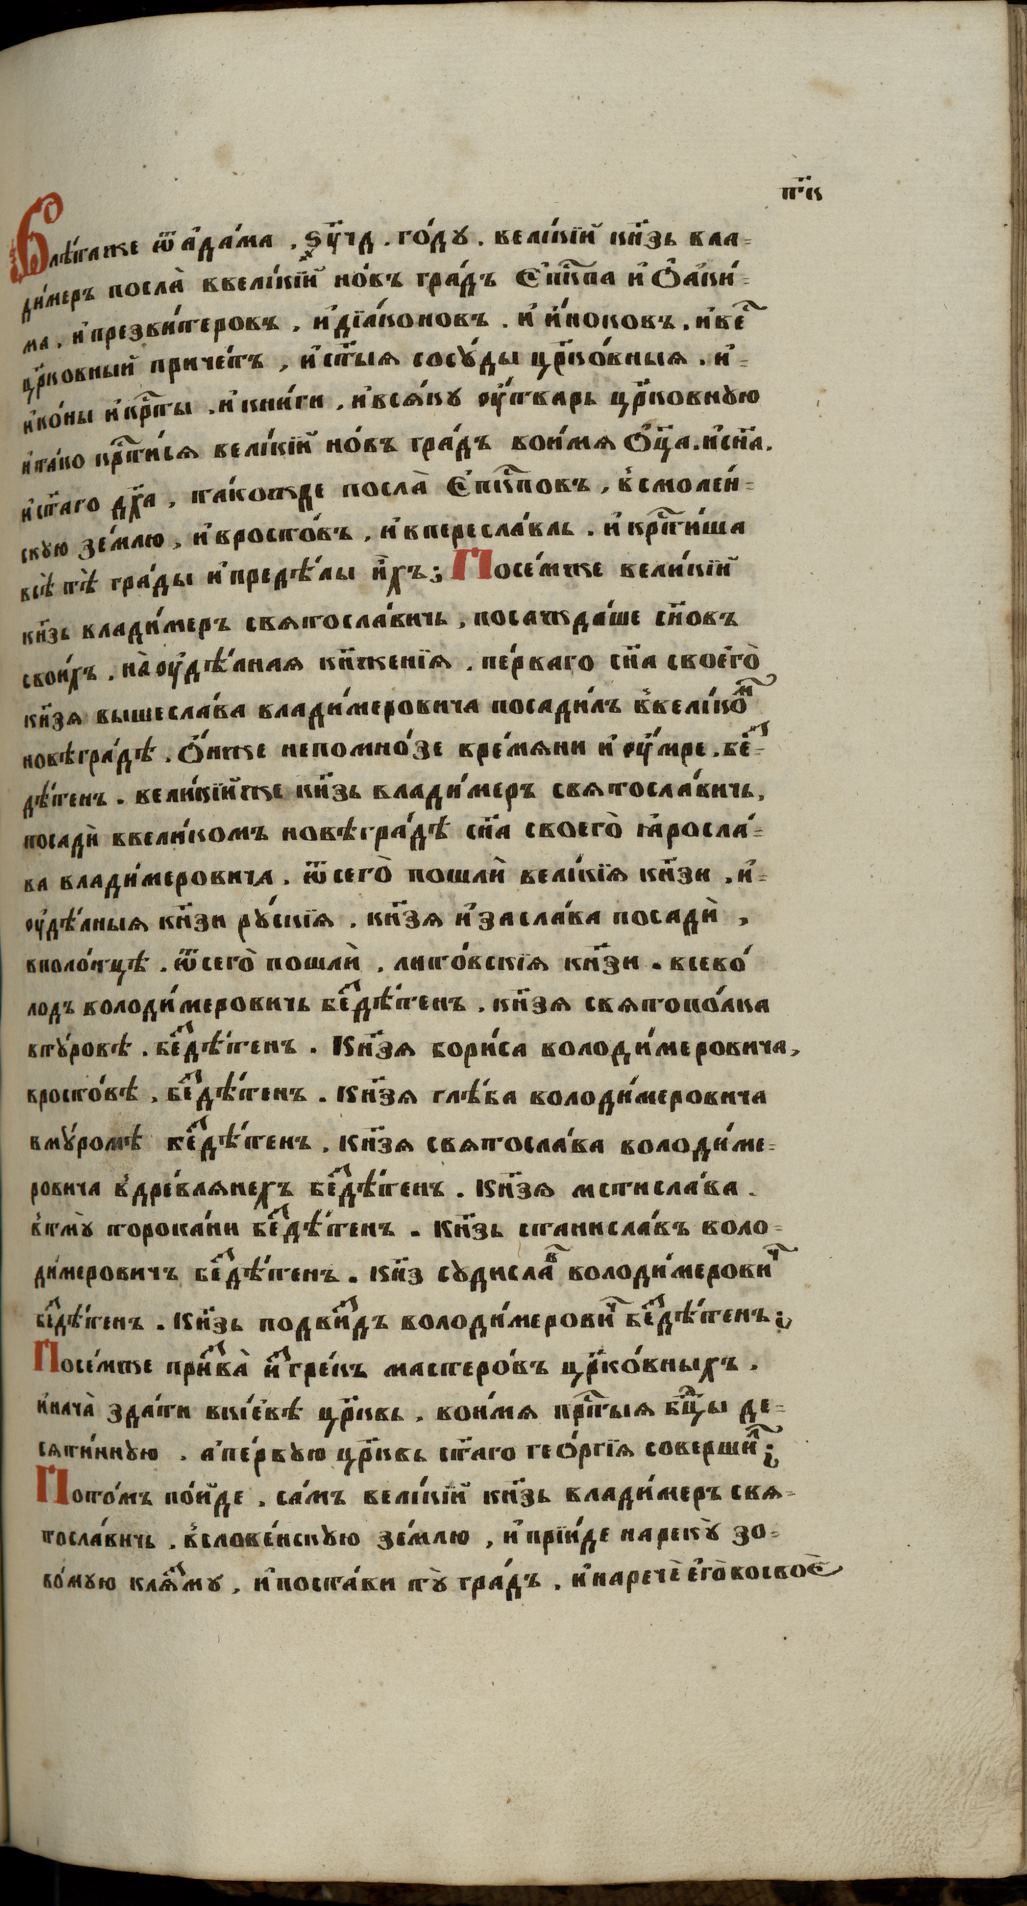 пт҃к
Влѣ́таже ѿ а҆да́ма . ѕ҃уч҃д . го́ду . вели́кїй кн҃зь вла=
ди́меръ посла̀ ввели́кїй но́въ гра́дъ Є҆пк҇па и҆ Ѻ҆аки́=
ма . и҆презви́теровъ , и҆дїа́коновъ . и҆ и҆́ноковъ . и҆ве҇
цр҃ковный приче́тъ , и҆ ст҃ы́я сосу́ды цр҃ко́вныя . и҆=
и҆ко́ны и҆кр҇ты . и҆кни́ги , и҆вся́ку оу҆́тварь цр҃ковную
и҆та́ко кр҇ти́ся вели́кїй но́въ гра́дъ воимя Ѻ҆ц҃а . и҆сн҃а .
и҆ст҃аго дх҃а , такожде посла̀ Є҆пк҇повъ , в̾смоле́н=
скую зе́млю , и҆вросто́въ , и҆впересла́вль . и҆ кр҇ти́ша
всѣ̀ тѣ̀ гра́ды и҆предѣ́лы и҆́хъ ; Посе́мже вели́кїй
кн҃зь влади́меръ святосла́вичь , посажда́ше сн҃овъ
свои́хъ . на̀ оу҆дѣ́лная кн҃женїя . пе́рваго сн҃а своего̀
кн҃зя вышесла́ва влади́меровича посади́лъ в̾вели́ком
новѣгра́дѣ . Ѻ҆́нже непомно́зе вре́мяни и҆ оу҆́мре . беⷥ=
дѣ́тенъ . вели́кїйже кн҃зь влади́меръ святосла́вичь ,
посадѝ ввели́комъ новѣгра́дѣ сн҃а своего̀ ꙗ҆росла́=
ва влади́меровича . ѿсего̀ пошлѝ вели́кїя кн҃зи . и҆=
оу҆дѣ́лныя кн҃зи ру́скїя . кн҃зя и҆засла́ва посадѝ ,
вполо́тцѣ . ѿсего̀ пошлѝ . лито́вскїя кн҃зи . всево́
лодъ володи́меровичь беⷥдѣ́тенъ . кн҃зя святопо́лка
вту́ровѣ . беⷥдѣ́тенъ . Кн҃зя бори́са володи́меровича ,
вросто́вѣ , беⷥдѣ́тенъ . Кн҃зя глѣ́ба володи́меровича
вму́ромѣ беⷥдѣ́тенъ . кн҃зя святосла́ва володи́ме=
ровича в̾дре́влянехъ беⷥдѣ́тенъ . Кн҃зя мстисла́ва .
в̾тму̀торока́ни беⷥдѣ́тенъ . Кн҃зь станисла́въ воло=
ди́меровичъ беⷥдѣ́тенъ . Кн҃з судислаⷡ володи́меровиⷱ
беⷥдѣ́тенъ . Кн҃зь подвиⷥдъ володи́меровиⷱ беⷥдѣ́тенъ ;
Посе́мже призва̀ иⷥгре́къ мастеро́въ цр҃ко́вныхъ .
и҆нача̀ зда́ти вкі́евѣ цр҃ковь . воимя пр҇ты́я бц҃ы де=
сяти́нную . а҆пе́рвую цр҃ковь ст҃аго гео́ргїя совершиⷧ ;
Пото́мъ по́йде . са́мъ вели́кїй кн҃зь влади́меръ свя=
тосла́вичь . в̾слове́нскую зе́млю , и҆ прїи́де нареку̀ зо=
во́мую кляⷥму , и҆поста́ви ту̀ гра́дъ . и҆наречѐ є҆го̀ восвоѐ